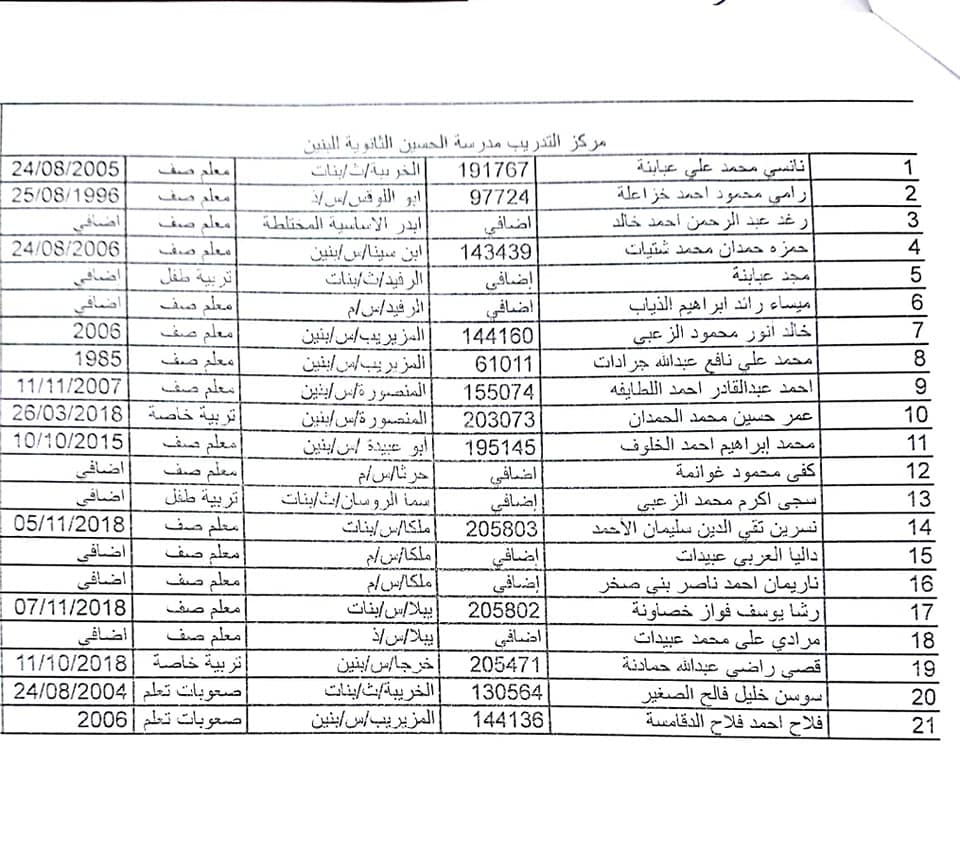 مركز التدريب مدرسة الحسين الثانوية للبنين
1 نانسي محمد علي عبابنة 191767 الخريبة/ث/بنات معلم صف 24/08/2005
2 رامي محمود احمد خزاعلة 97724 ابو اللوقس/س/ذ معلم صف 25/08/1996
3 رغد عبد الرحمن احمد خالد اضافي ابدر الاساسية المختلطة معلم صف اضافي
4 حمزه حمدان محمد شتيات 143439 ابن سينا/س/بنين معلم صف 24/08/2006
5 مجد عبابنة إضافي الرفيد/ث/بنات تربية طفل اضافي
6 ميساء رائد ابراهيم الذياب اضافي الرفيد/س/م معلم صف اضافي
7 خالد انور محمود الزعبي 144160 المزيريب/س/بنين معلم صف 2006
8 محمد علي نافع عبدالله جرادات 61011 المزيريب/س/بنين معلم صف 1985
9 احمد عبدالقادر احمد اللطايفه 155074 المنصورة/س/بنين معلم صف 11/11/2007
10 عمر حسين محمد الحمدان 203073 المنصورة/س/بنين تربية خاصة 26/03/2018
11 محمد إبراهيم احمد الخلوف 195145 ابو عبيدة /س/بنين معلم صف 10/10/2015
12 كفى محمود غوانمة اضافي حرثا/س/م معلم صف اضافي
13 سجى اكرم محمد الزعبي إضافي سما الروسان/ث/بنات تربية طفل اضافي
14 نسرين تقي الدين سليمان الأحمد 205803 ملكا/س/بنات معلم صف 05/11/2018
15 داليا العربي عبيدات إضافي ملكا/س/م معلم صف اضافي
16 ناريمان احمد ناصر بني صخر إضافي ملكا/س/م معلم صف اضافي
17 رشا يوسف فواز خصاونة 205802 يبلا/س/بنات معلم صف 07/11/2018
18 مرادي علي محمد عبيدات اضافي يبلا/س/ذ معلم صف اضافي
19 قصي راضي عبدالله حمادنة 205471 خرجا/س/بنين تربية خاصة 11/10/2018
20 سوسن خليل فالح الصغير 130564 الخريبة/ث/بنات صعوبات تعلم 24/08/2004
21 فلاح احمد فلاح الدقامسة 144136 المزيريب/س/بنين صعوبات تعلم 2006